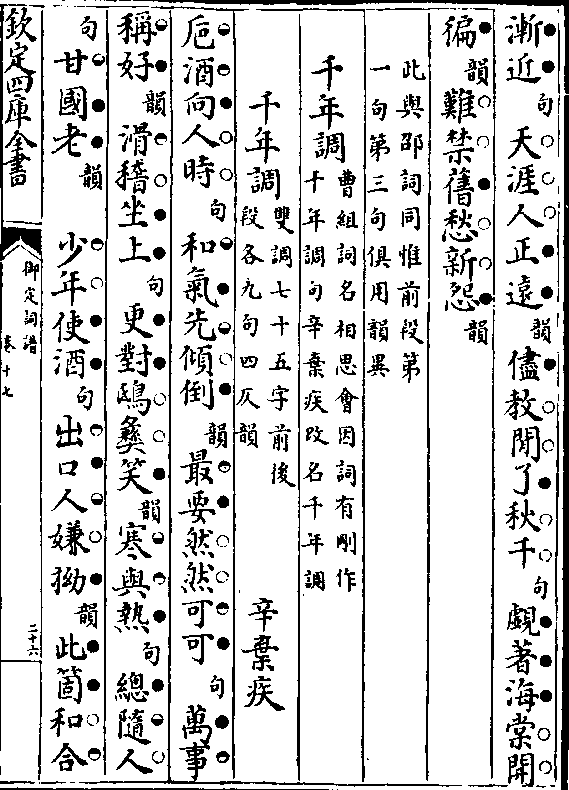 漸近句天涯人正遠韻儘教閒了秋千句覷著海棠開
徧韻難禁舊愁新怨韻
此與邵詞同惟前段第
一句第三句俱用韻異
千年調曹組詞名相思會因詞有剛作
千年調句辛棄疾改名千年調
千年調雙調七十五字前後
段各九句四仄韻
辛棄疾
巵酒向人時句和氣先傾倒韻最要然然可可句萬事
稱好韻滑稽坐上句更對鴟彝笑韻寒與熱句總隨人
句甘國老韻少年使酒句出口人嫌拗韻此箇和合
欽定四庫全書
御定詞譜
卷十七
二十六